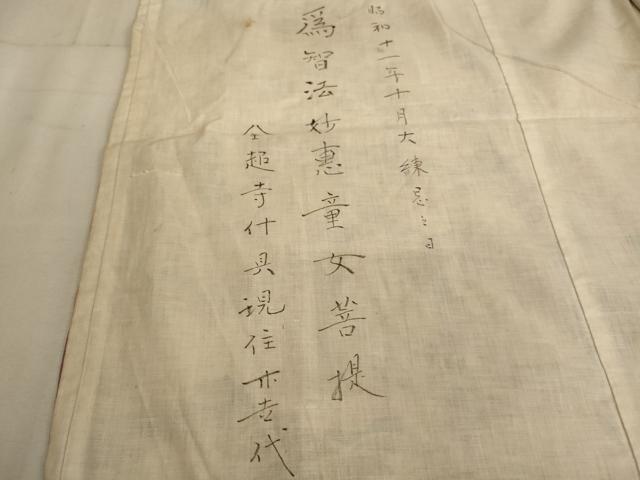 昭和十一年十月大練忌之日
為智法妙惠童女菩提
全超寺什具現住亦吉代